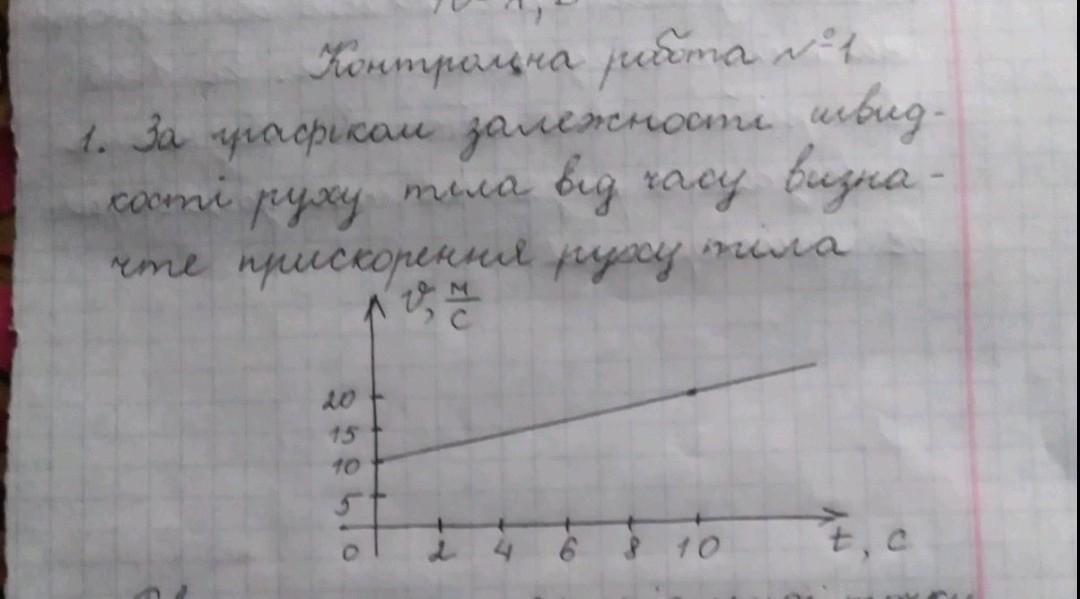 Контрольна робота №1
1. За графіком залежності швид-
кості руху тіла від часу визна-
чте прискорення руху тіла
υ, м/с
20
15
10
5
0 2 4 6 8 10 t, с